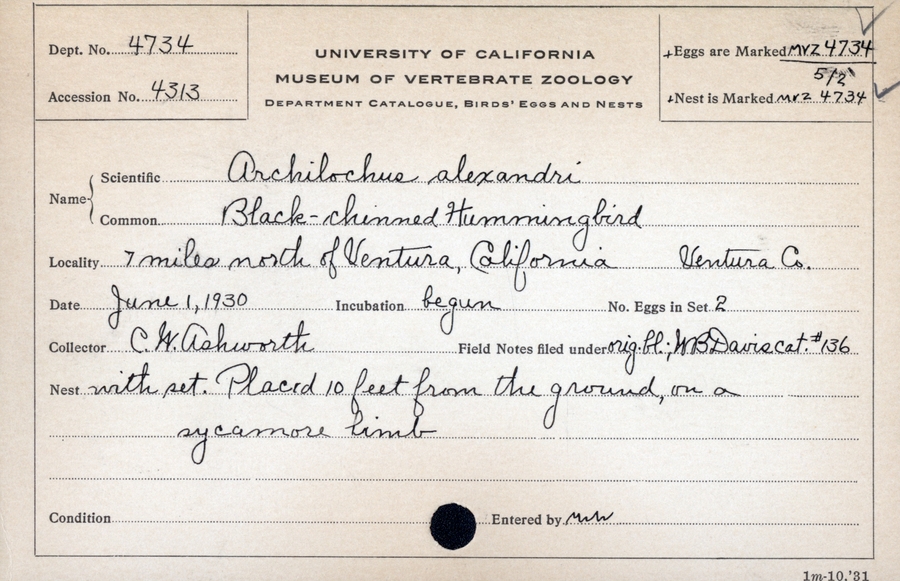 Dept. No. 4734
Accession No. 4313
UNIVERSITY OF CALIFORNIA
MUSEUM OF VERTEBRATE ZOOLOGY
DEPARTMENT CATALOGUE, BIRDS' EGGS AND NESTS
Eggs are Marked MVZ 4734
5/2
Nest is Marked MVZ 4734
Name
Scientific Archilochus alexandri
Common Black-chinned Hummingbird
Locality 7 miles north of Ventura, California Ventura Co.
Date June 1, 1930 Incubation begun No. Eggs in Set 2
Collector C. W. Ashworth Field Notes filed under orig. bl.; WB Davis cat. #136
Nest with set. Placed 10 feet from the ground, on a
sycamore limb
Condition Entered by
1m-10.'31